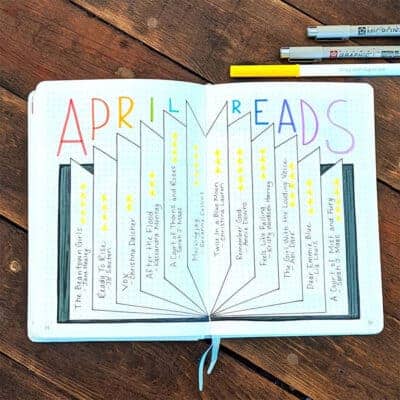 APRIL READS
The Beantown Girls
- Jane Healey
Ready To Rise
- Jill
VOX
- Christina Dalcher
After the Flood
- Kassandra Montag
A Court of Thorns and Roses
- Sarah J Maas
Twice In a Blue Moon
- Christina Lauren
Remember God
- Annie Downs
Feels Like Falling
- Kristy Woodson Harvey
The Girl With the Louding Voice
- Abi Daré
Dear Emmie Blue
- Lia Louis
A Court of Mist and Fury
- Sarah J Maas
MICRON